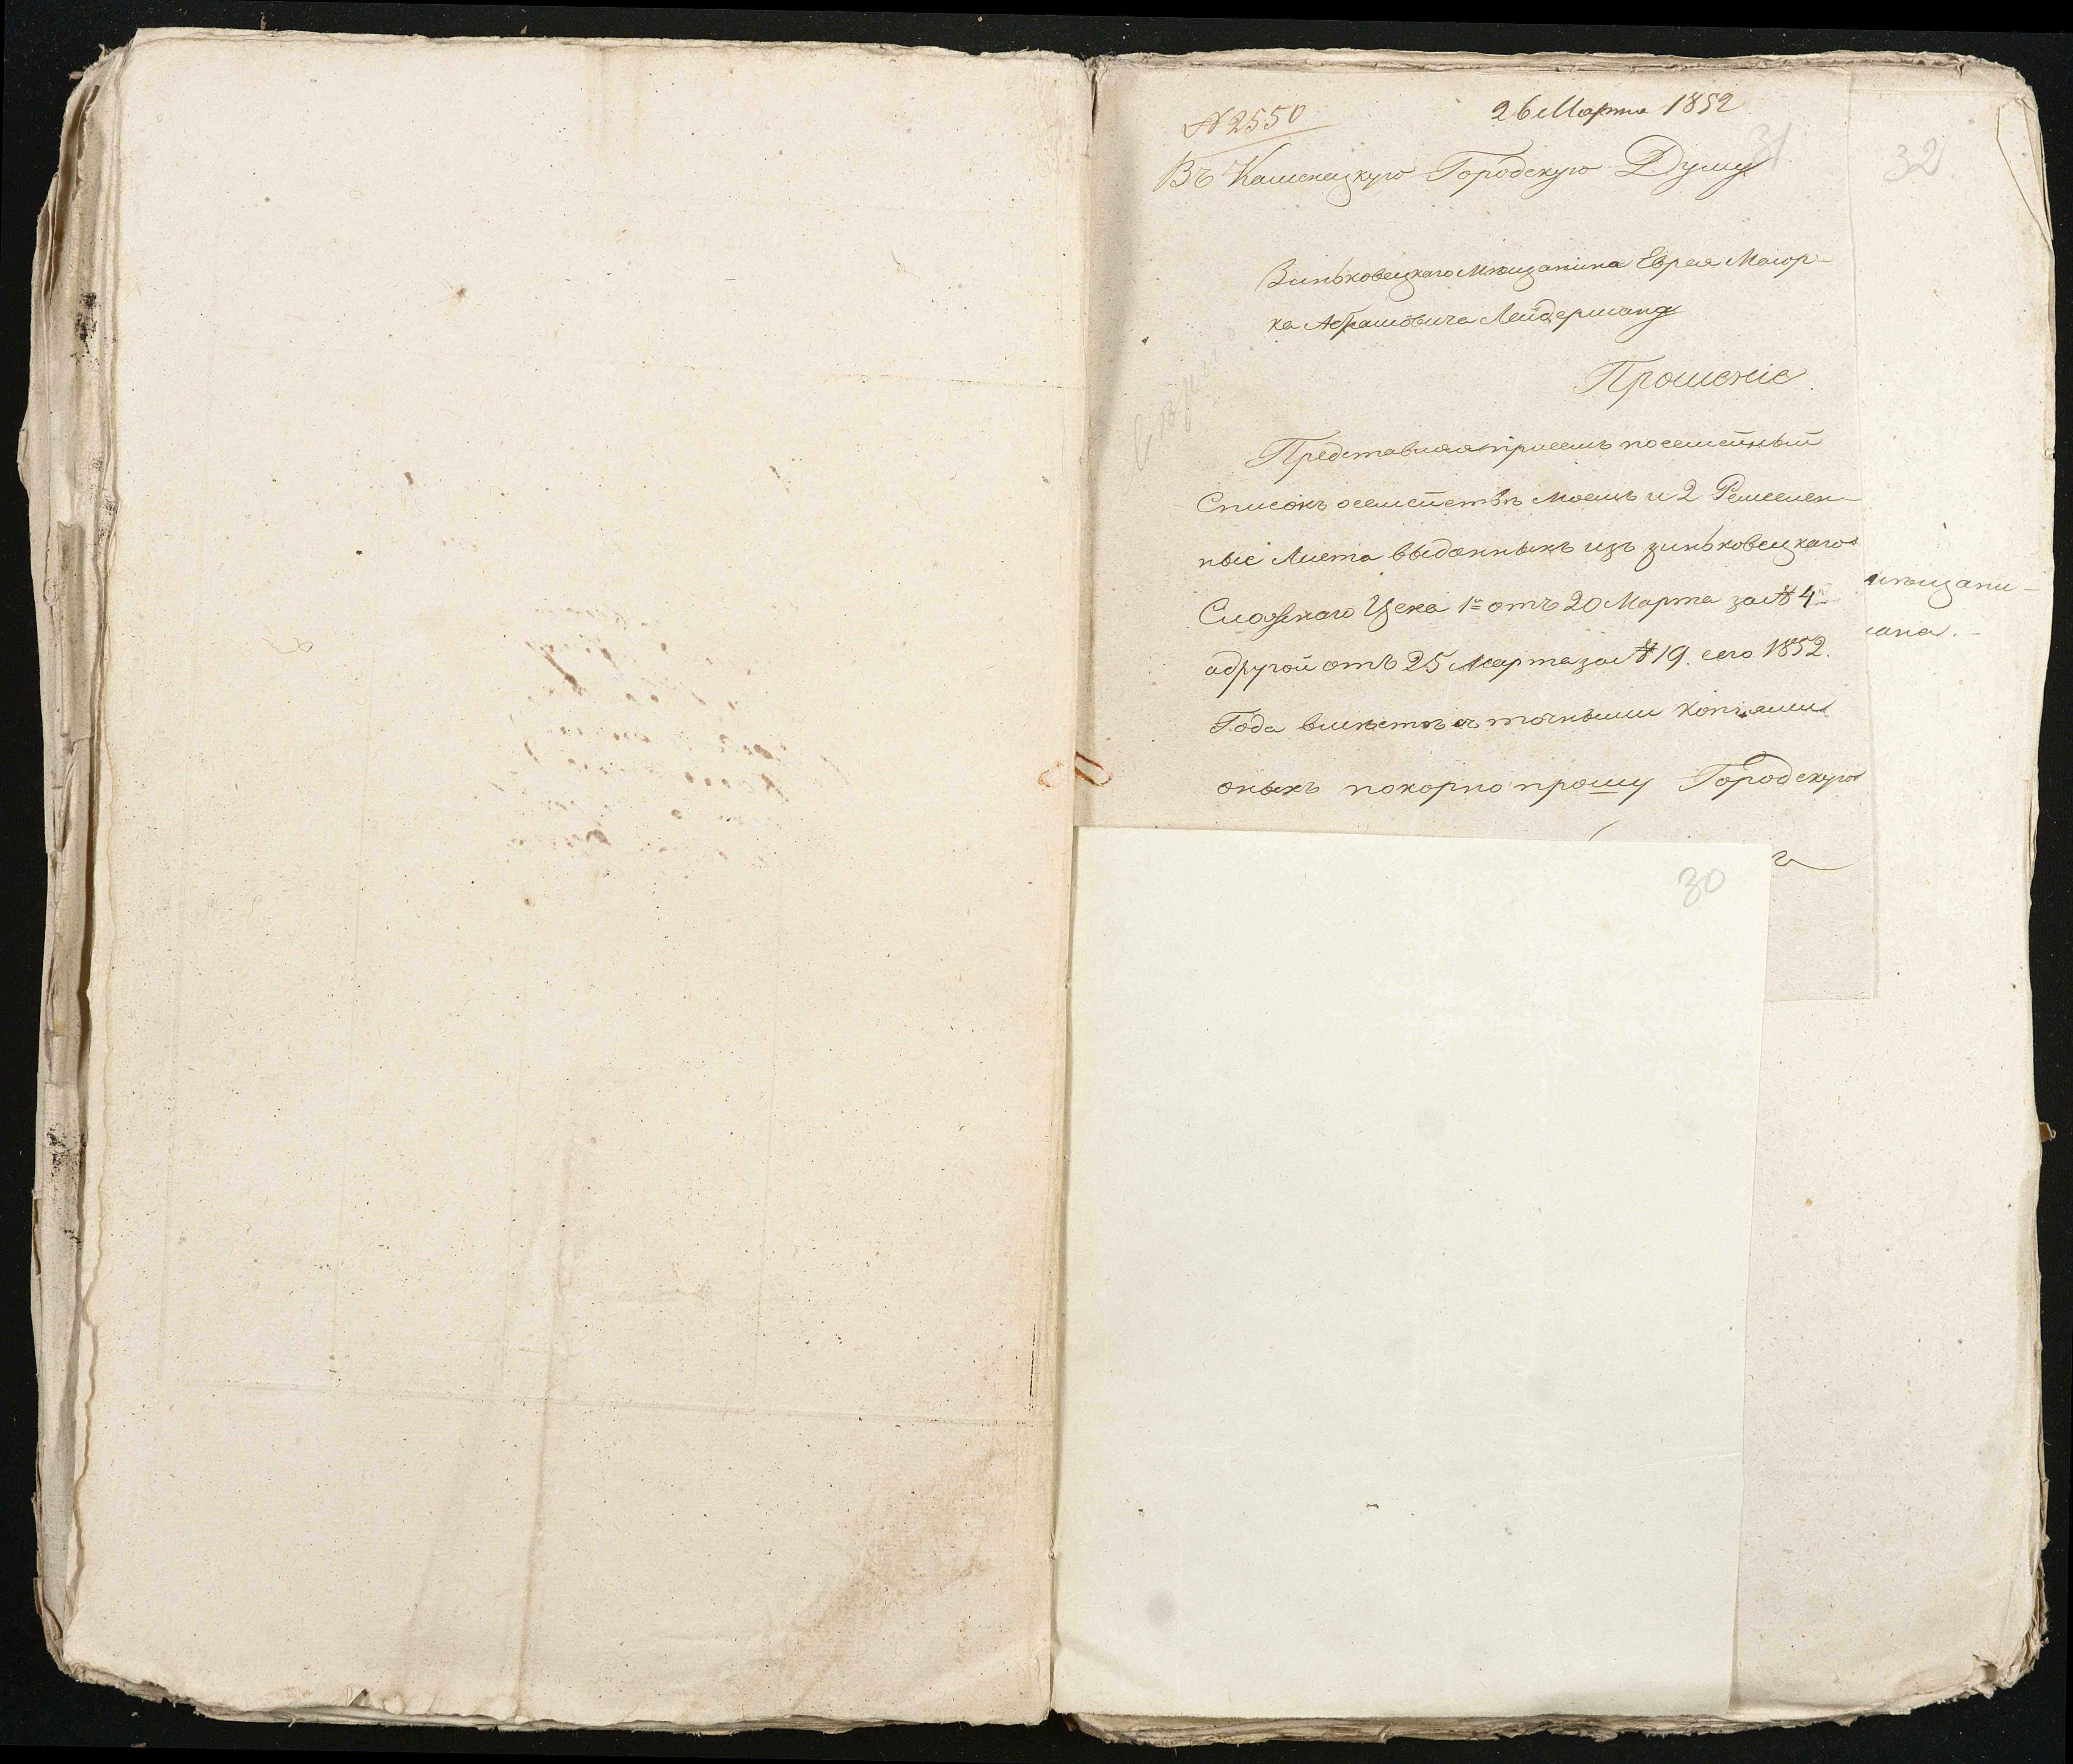 № 2550
26 Марта 1852
31
32
Въ Каменецкую Городскую Думу
Зиньковецкаго Мѣщанина Еврея Маіор-
ка Абрамовича Лейдермана
Прошеніе
Представляя присемъ посемейный
Списокъ осемействѣ моемъ и 2 Ремеслен-
ные Листа выданныхъ изъ зиньковецкаго
Цеха 1й отъ 20 Марта за № 4
адругой отъ 25 Марта за № 19. сего 1852.
Года вмѣстѣ съ точными копіями
оныхъ покорно прошу Городскую
30
мѣщани-
мана.-